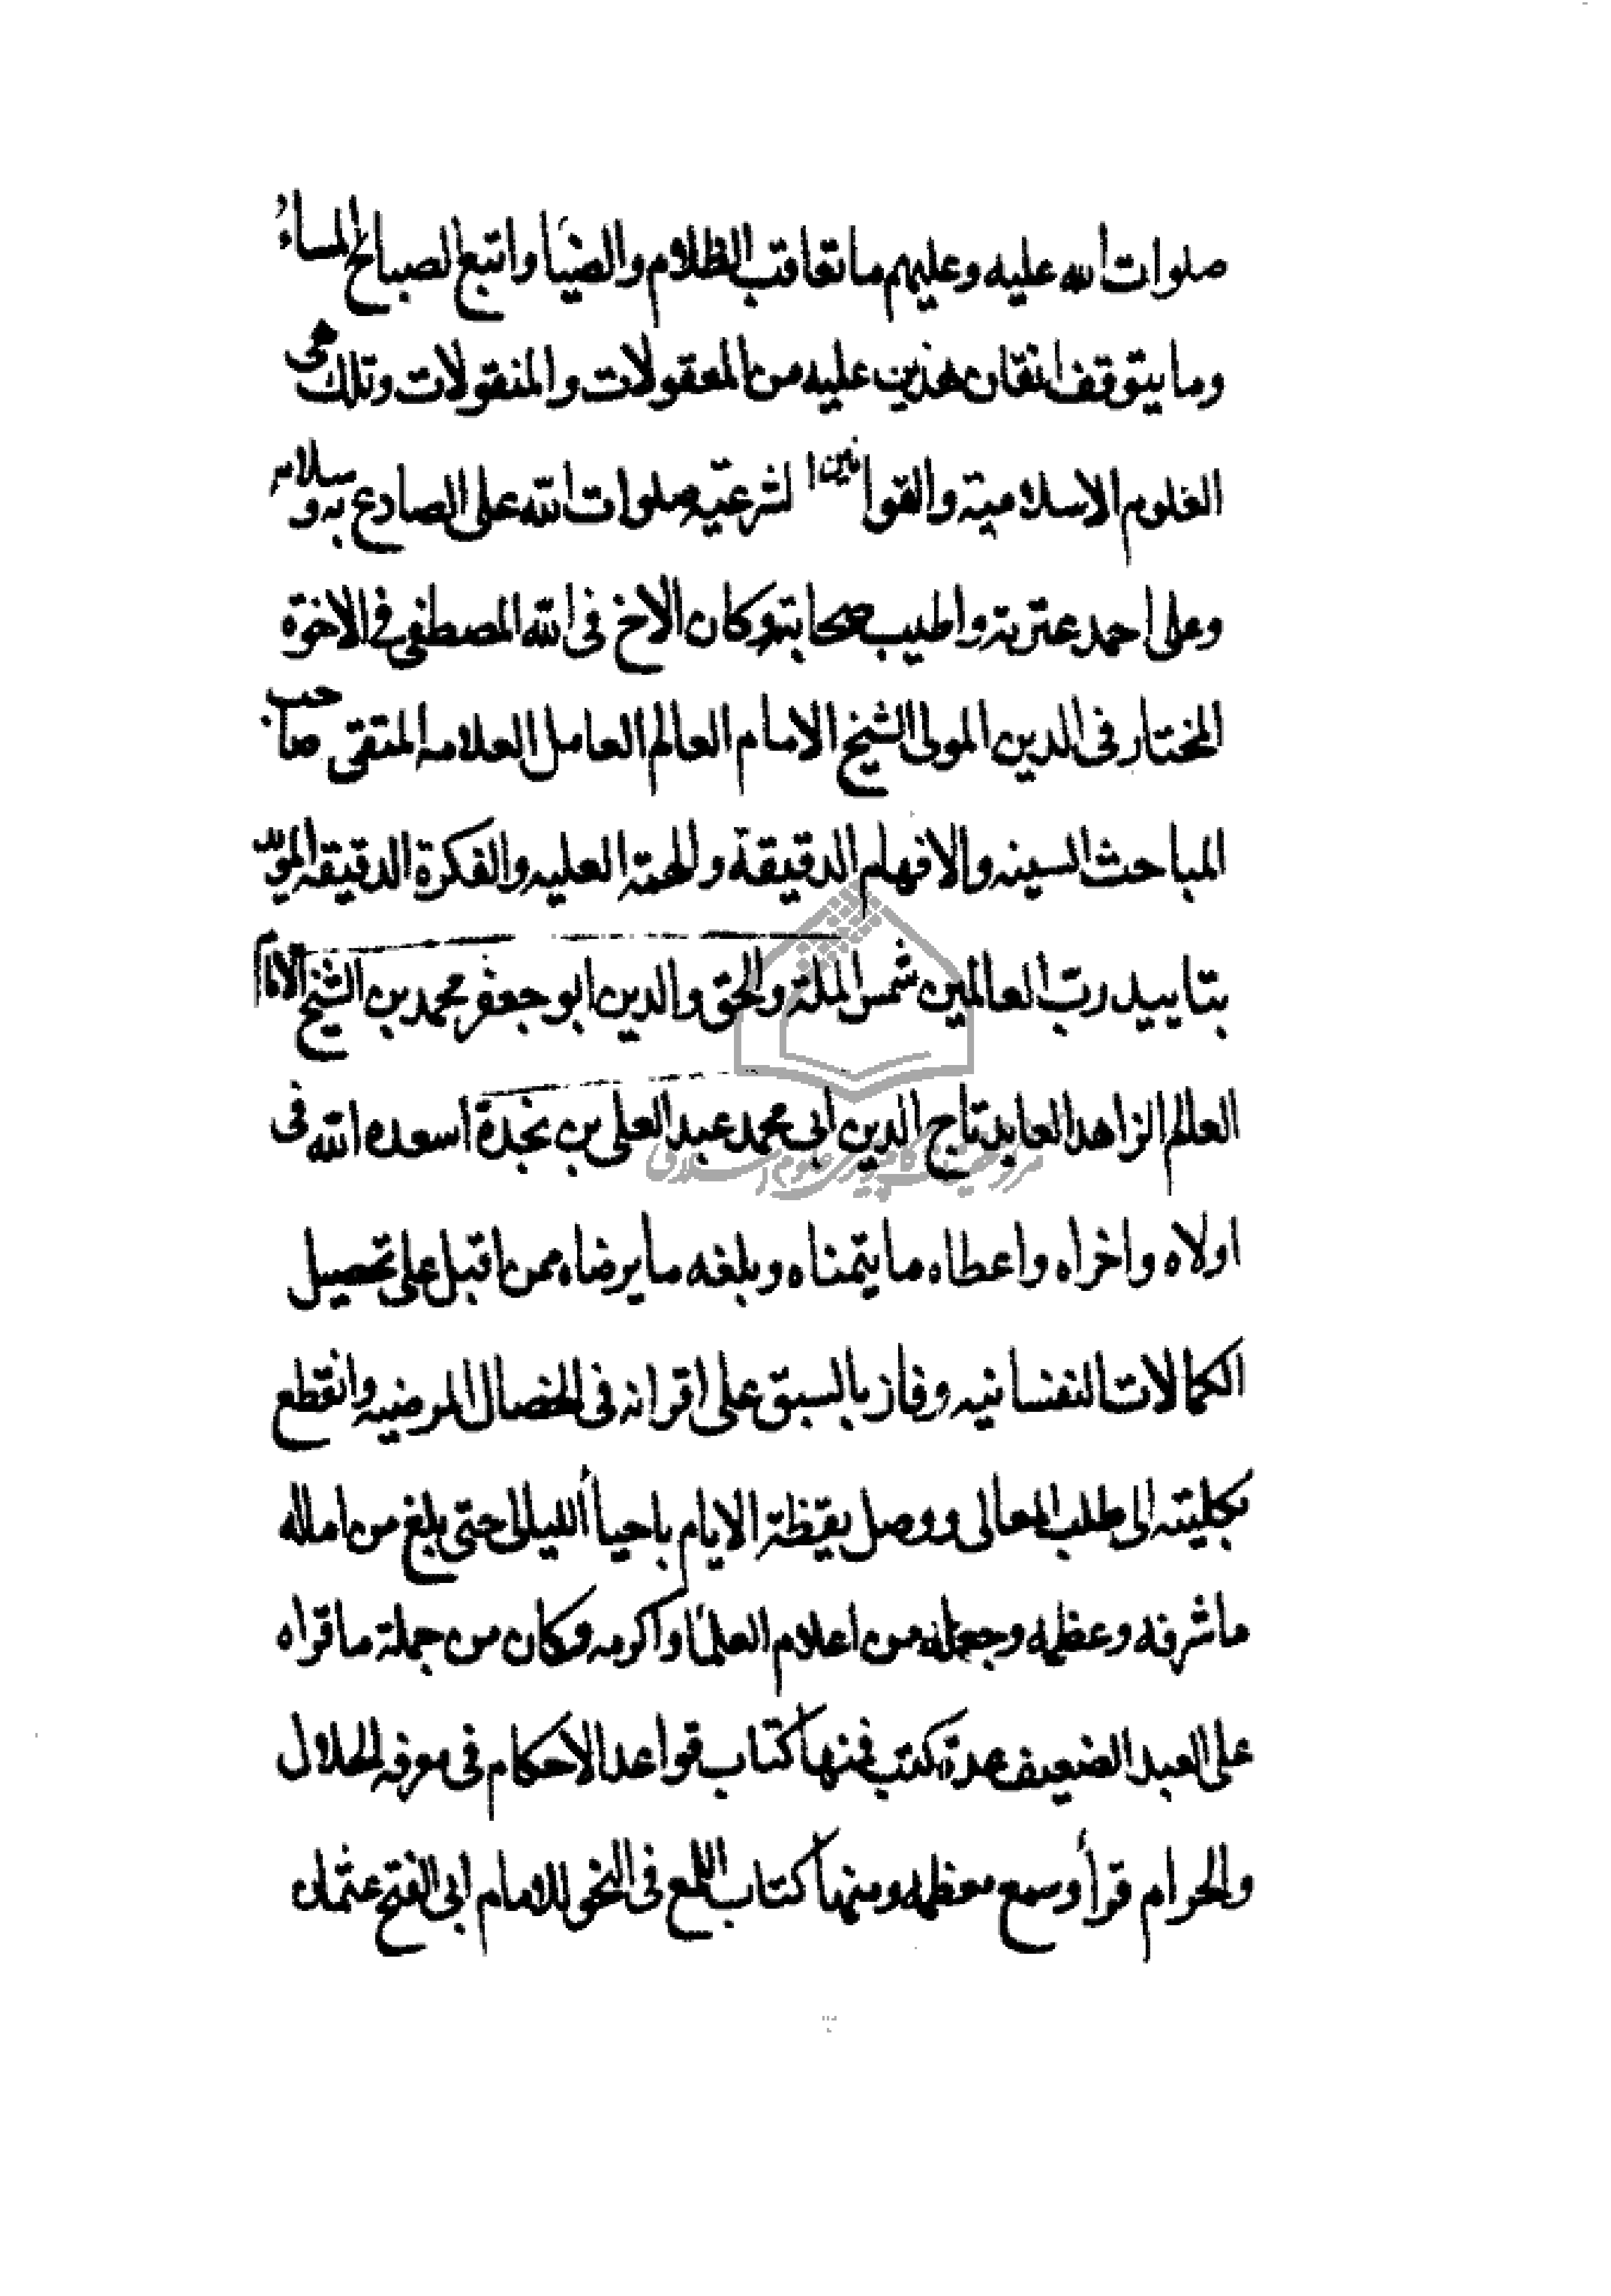 صلوات الله عليه وعليهم ما تعاقب الظلام والضيآ واتبع الصباح المساءُ
وما يتوقف اتقان هذين عليه من المعقولات والمنقولات وتلك هى
العلوم الاسلامية والقوانين الشرعيه صلوات الله على الصادع به وسلامه
وعلى احمد عترته واطيب صحابته وكان الاخ فى الله المصطفى فى الاخوة
المختار فى الدين المولى الشيخ الامام العالم العامل العلامه المتقى صاحب
المباحث السينه والافهام الدقيقة والهمة العليه والفكرة الدقيقه المويّد
بتاييد ربّ العالمين شمس الملة والحق والدين ابو جعفر محمد بن الشيخ الامام
العالم الزاهد العابد تاج الدين ابى محمد عبد العلى بن نجدة أسعده الله فى
اولاه واخراه واعطاه ما يتمناه وبلغه ما يرضاه ممن اقبل على تحصيل
الكمالات النفسانيه وفاز بالسبق على اقرانه فى الخصال المرضيه وانقطع
بكليته الى طلب المعالى ووصل يقظة الايام باحيأ الليالى حتى بلغ من اماله
ما شرفه وعظمه وجعله من اعلام العلمآ واكرمه وكان من جملة ما قراه
على العبد الضعيف عدة كتب فمنها كتاب قواعد الأحكام فى معرفه الحلال
والحرام قرأ وسمع معظمه ومنها كتاب اللمع فى النحو للامام ابى الفتح عثمان
مركز تحقيقات كامپيوترى علوم اسلامى